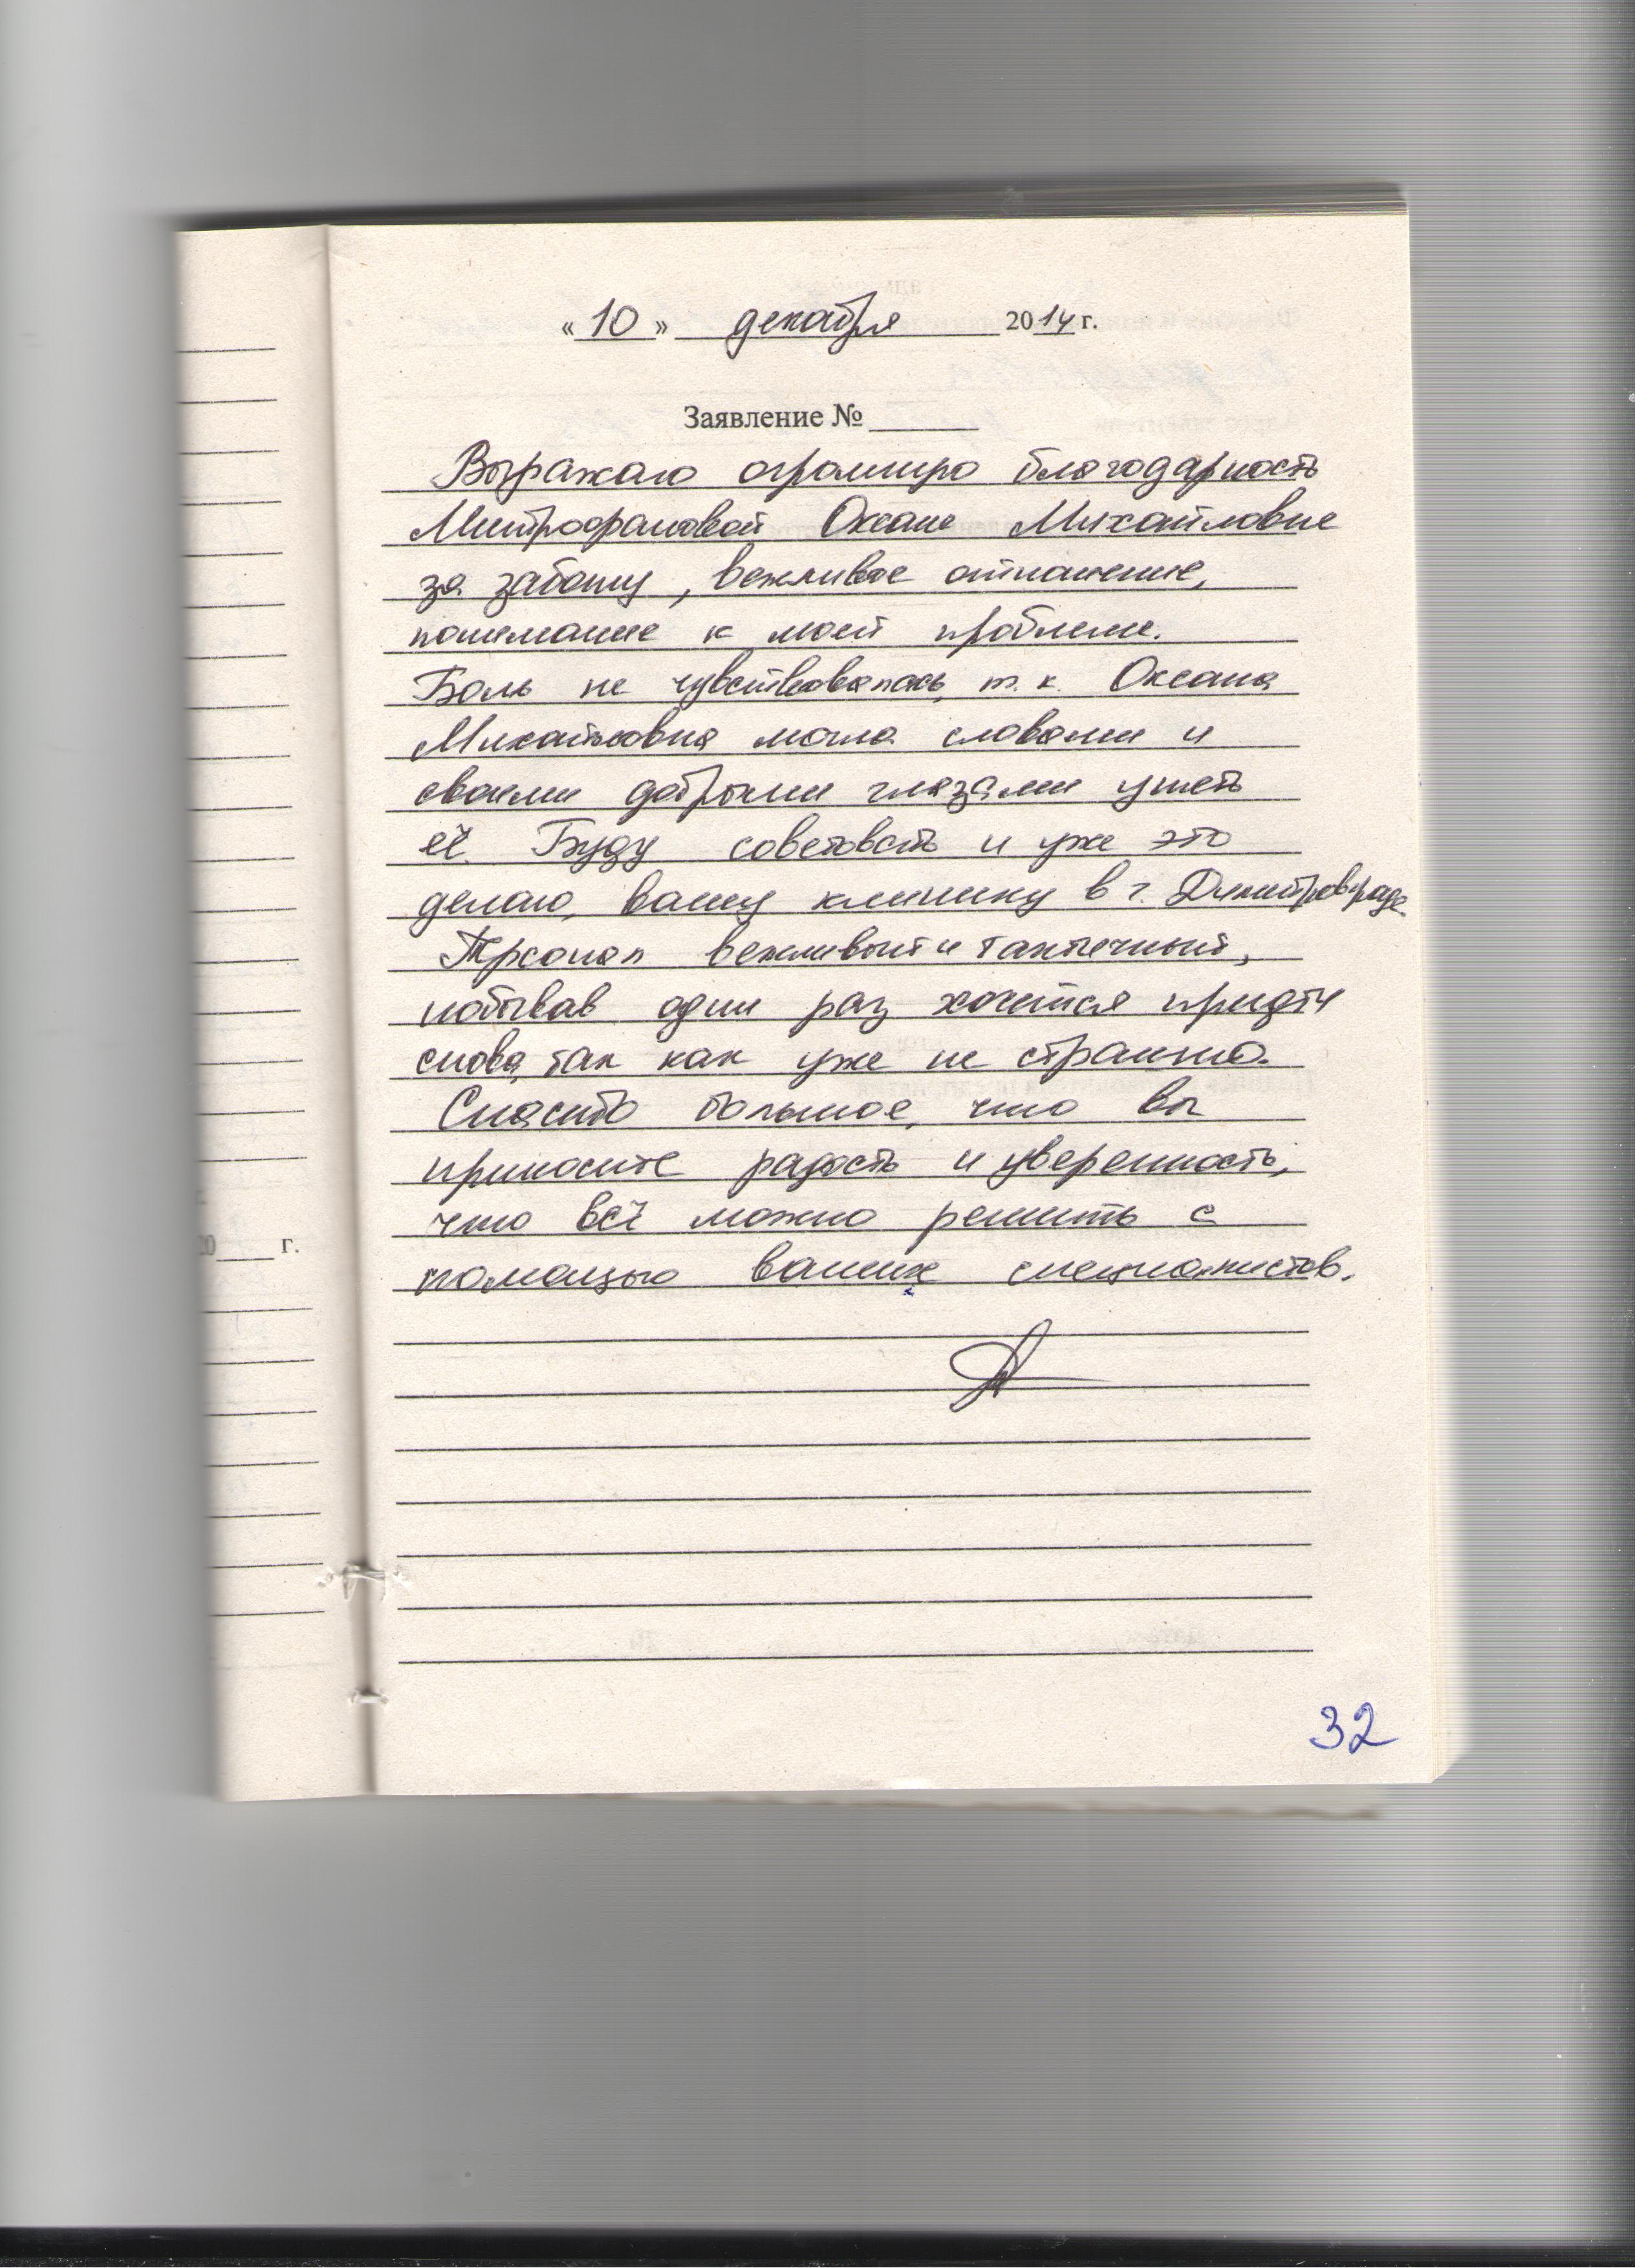 «10» декабря 2014 г.
Заявление №
Выражаю огромную благодарность
Митрофановой Оксане Михайловне
за заботу, вежливое отношение,
понимание к моей проблеме.
Боль не чувствовалась, т.к. Оксана
Михайловна могла словами и
своими добрыми глазами унять
её. Буду советовать и уже это
делаю, вашу клинику в г. Димитровграде.
Персонал вежливый и тактичный,
побывав один раз хочется придти
снова, так как уже не страшно.
Спасибо большое, что вы
приносите радость и уверенность,
что всё можно решить с
помощью ваших специалистов.
20 г.
32